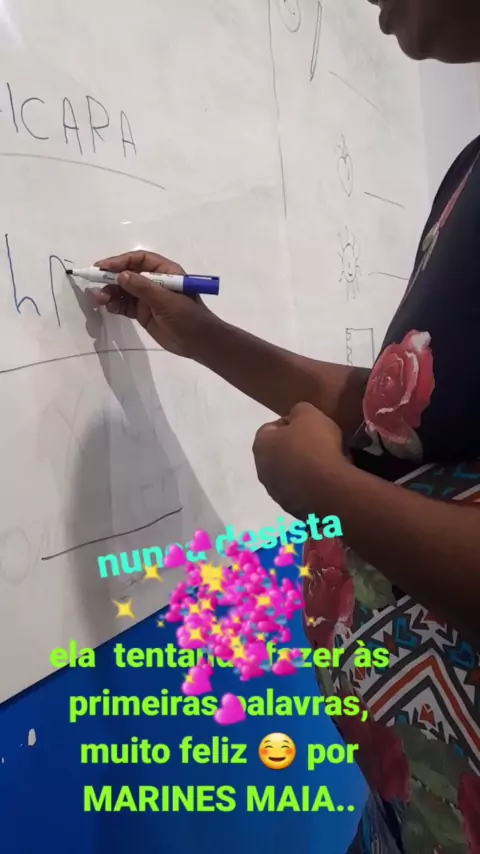 ICARA
h
nunca desista
ela tentando fazer às
primeiras palavras,
muito feliz ☺️ por
MARINES MAIA..